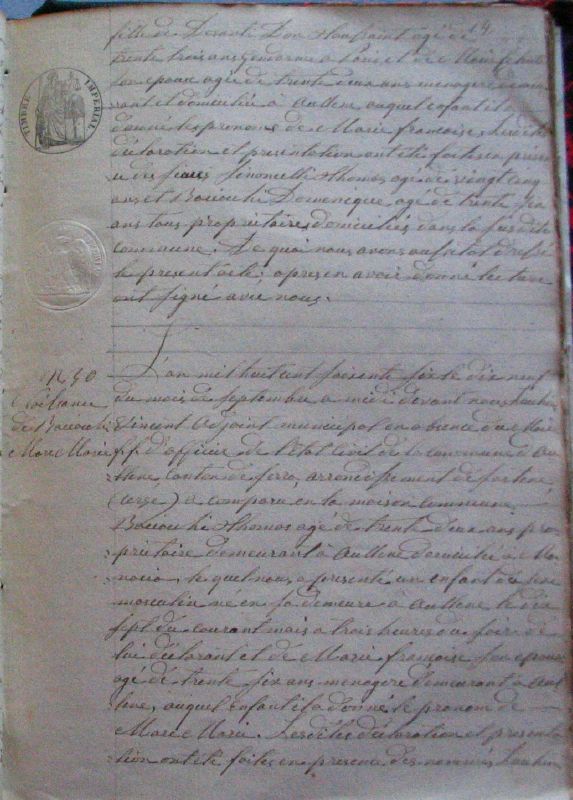 14
fille de Devant Don Toussaint âgé de
trente trois ans gendarme à et de Marie
son épouse agée de trente deux ans menagere
et domiciliée à Aullene auquel enfant il a
donné les prenoms de Marie françoise. Lesdites
déclaration et presentation ont été faites en présen
ce des sieurs Simonelli Thomas age de vingt cinq
ans et Bouchi Domenique, age de trente
ans tous proprietaires domiciliés dans la susdite
commune, De quoi nous avons aussitot dressé
le present acte, apres en avoir donné lecture
ont signé avec nous.
TIMBRE IMPERIAL
N 50
de
More Marie
L'an mil huit cent soixante six le dix neuf
du mois de Septembre à midi devant nous
Vincent adjoint municipal en absence du Maire
ff d'officier de l'Etat Civil de la commune d'Au
llene, Canton de Serra, arrondissement de Sartene
(Corse) a comparu en la maison commune,
Thomas agé de trente deux ans pro
prietaire demeurant à Aullene domicilié à Mo
nacia le quel nous a presenté un enfant du sexe
masculin né en sa demeure à Aullene le dix
sept du courant mois à trois heures du soir de
lui déclarant et de Marie françoise son epouse
agé de trente six ans menagere demeurant à Aul
lene, auquel Enfant il a donné le prenom de
More Marie. Lesdites déclaration et presenta
tion ont été faites en presence des nommés